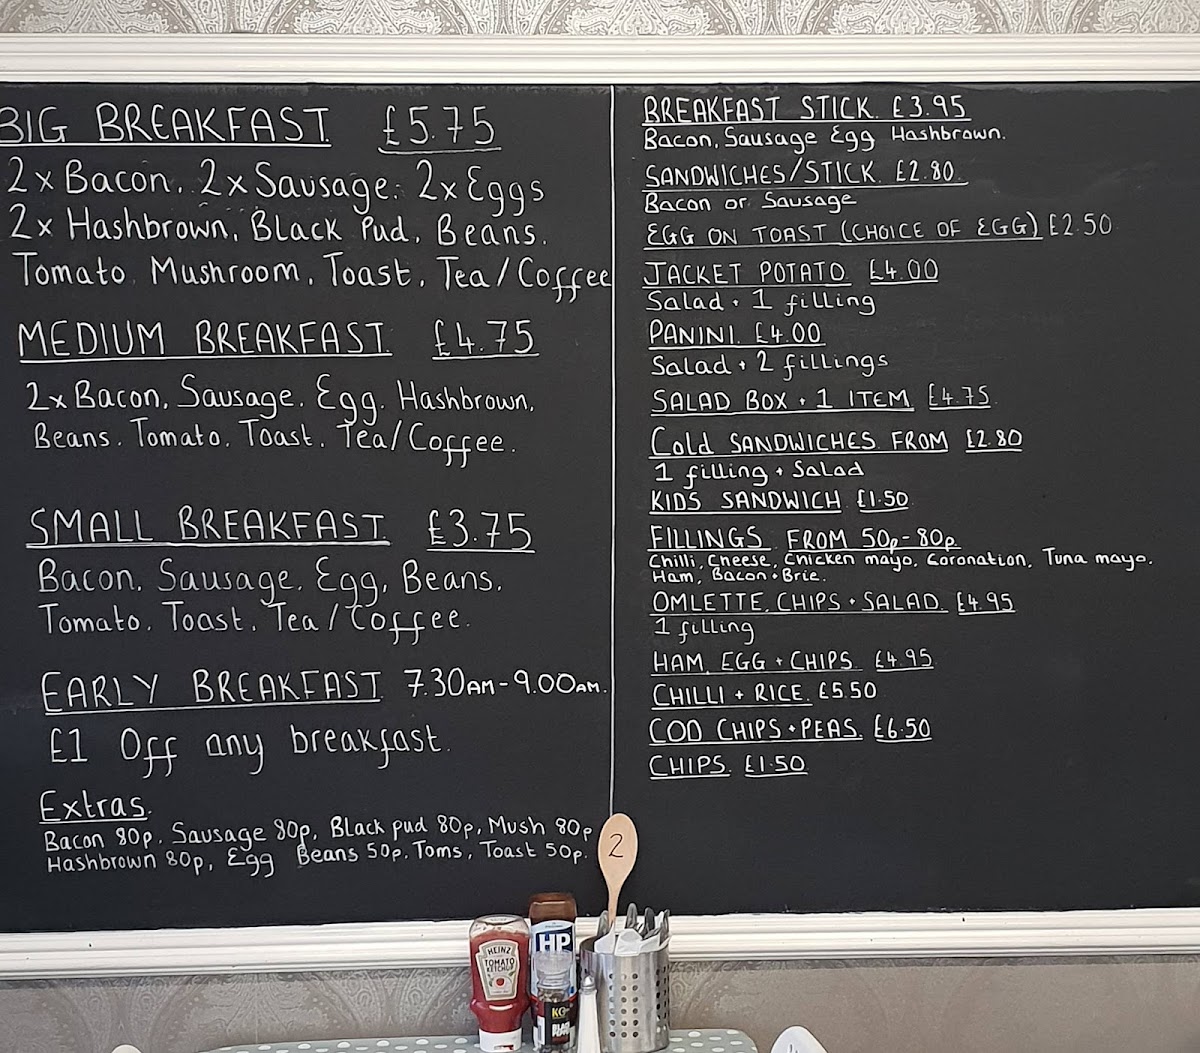 BIG BREAKFAST £5.75
2x Bacon. 2x Sausage. 2x Eggs
2x Hashbrown, Black Pud, Beans.
Tomato. Mushroom. Toast. Tea/Coffee
MEDIUM BREAKFAST £4.75
2x Bacon, Sausage. Egg. Hashbrown,
Beans. Tomato. Toast. Tea/Coffee.
SMALL BREAKFAST £3.75
Bacon. Sausage. Egg, Beans.
Tomato. Toast. Tea/Coffee.
EARLY BREAKFAST 7.30AM-9.00AM.
£1 Off any breakfast.
Extras.
Bacon 80p, Sausage 80p, Black pud 80p, Mush 80p
Hashbrown 80p, Egg Beans 50p. Toms, Toast 50p.
BREAKFAST STICK. £3.95
Bacon, Sausage Egg Hashbrown.
SANDWICHES/STICK. £2.80.
Bacon or Sausage
EGG ON TOAST (CHOICE OF EGG) £2.50
JACKET POTATO £4.00
Salad + 1 filling
PANINI. £4.00
Salad + 2 fillings
SALAD BOX + 1 ITEM. £4.75
Cold SANDWICHES FROM £2.80
1 filling + Salad
KIDS SANDWICH £1.50
FILLINGS FROM 50p-80p
Chilli, Cheese, Chicken mayo, Coronation, Tuna mayo.
Ham, Bacon + Brie.
OMLETTE, CHIPS + SALAD. £4.95
1 filling
HAM, EGG + CHIPS. £4.95
CHILLI + RICE. £5.50
COD CHIPS + PEAS. £6.50
CHIPS. £1.50
2
HEINZ
TOMATO
KETCHUP
HP
BLACK